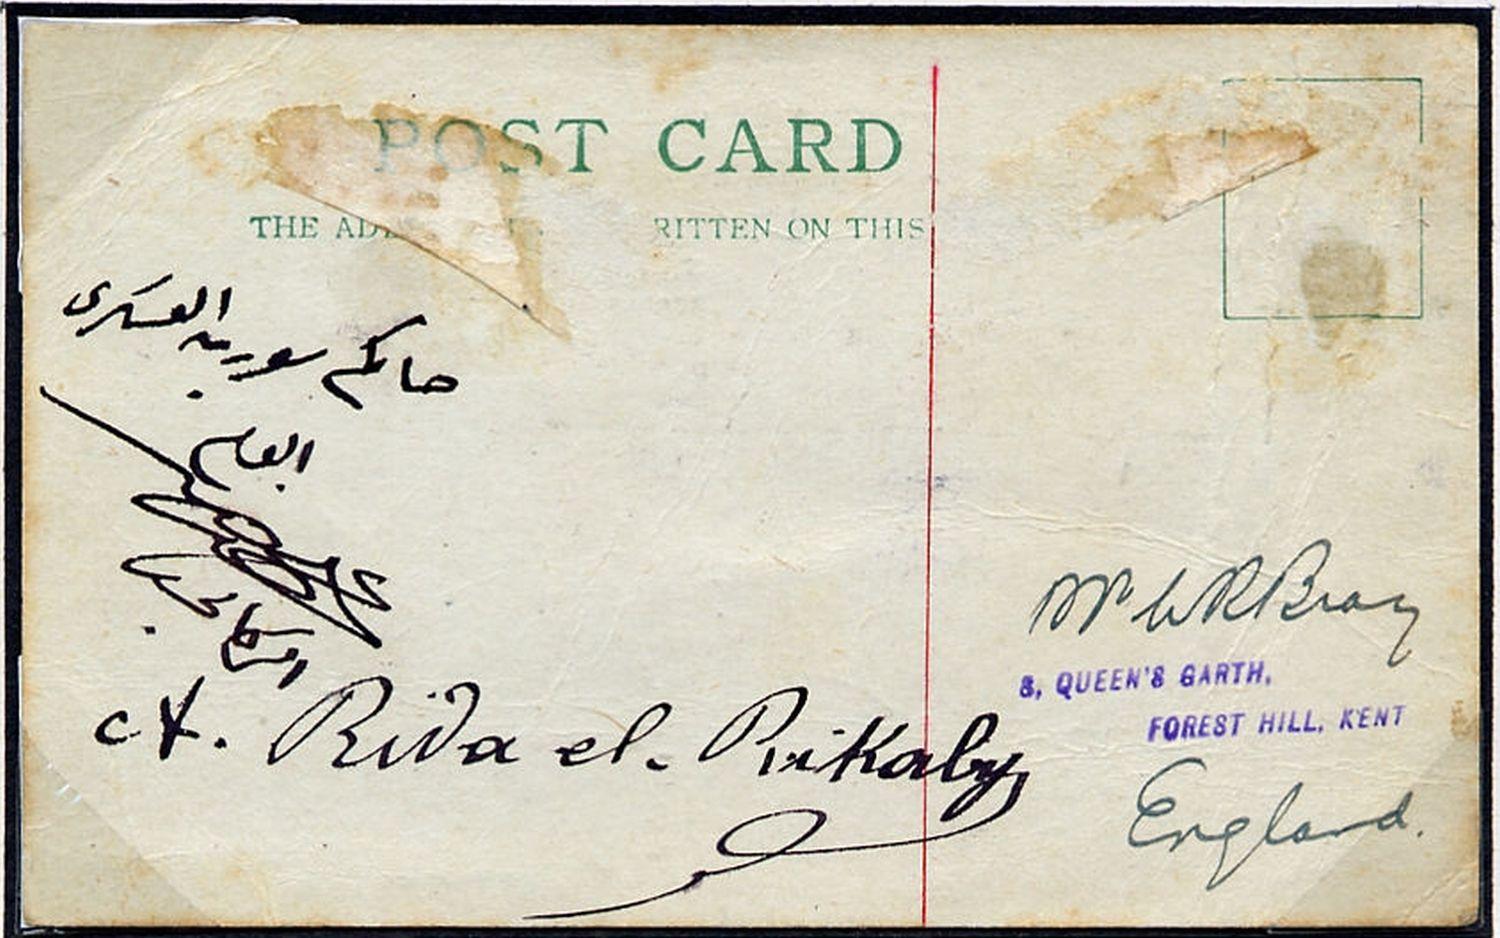 POST CARD
THE AD RITTEN ON THIS
حاكم سورية العسكرى
العام
الركابي
ct. Rida el-Rikaby
Mr W R Bray
8, QUEEN'S GARTH,
FOREST HILL, KENT
England.